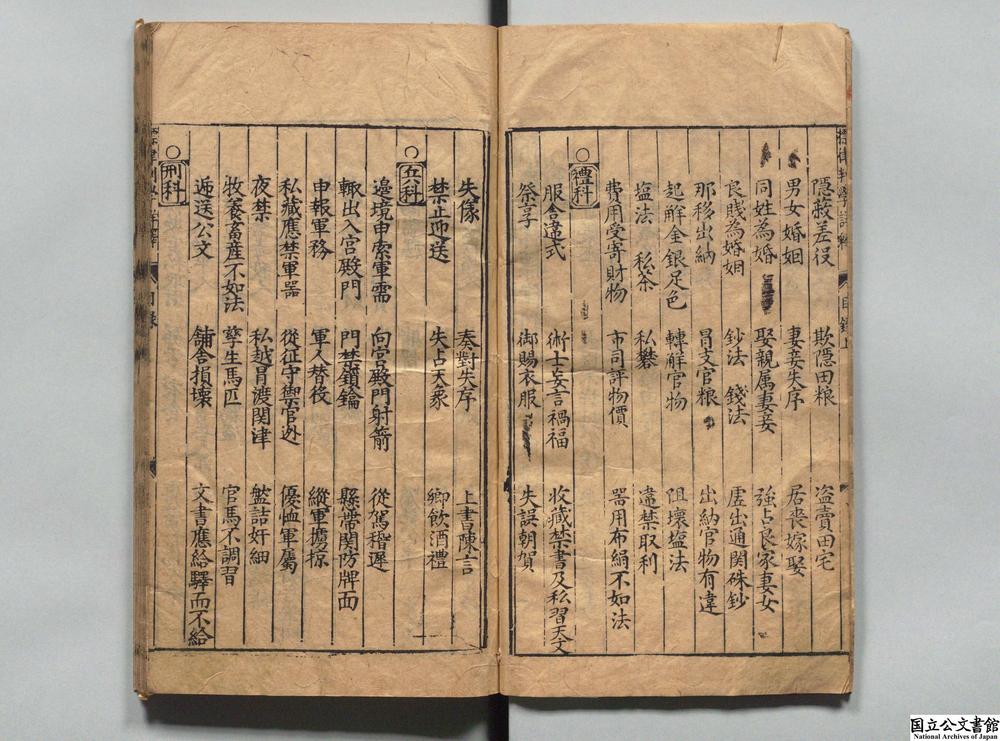 隱蔽差役 欺隱田粮 盗賣田宅
男女婚姻 妻妾失序 居喪嫁娶
同姓為婚 娶親属妻妾 強占良家妻女
良賤為婚姻 鈔法 錢法 虚出通関硃鈔
那移出納 冒支官粮 出納官物有違
起解金銀足色 轉解官物 阻壞塩法
塩法 私茶 私礬 違禁取利
費用受寄財物 市司評物價 噐用布絹不如法
○禮科
祭享 御賜衣服 失誤朝賀
服舍違式 術士妄言禍福 收藏禁書及私習天文
失儀 奏對失序 上書陳言
禁止迎送 失占天象 鄉飲酒禮
○兵科
邊境申索軍需 向宮殿門射箭 從駕稽遲
輙出入宮殿門 門禁鎖鑰 懸帶関防牌面
申報軍務 軍人替役 縱軍擄掠
私藏應禁軍器 從征守禦官迯 優恤軍屬
夜禁 私越冒渡関津 盤詰奸細
牧養畜産不如法 孳生馬匹 官馬不調習
逓送公文 舖舍損壞 文書應給驛而不給
○刑科
目錄
国立公文書館
National Archives of Japan